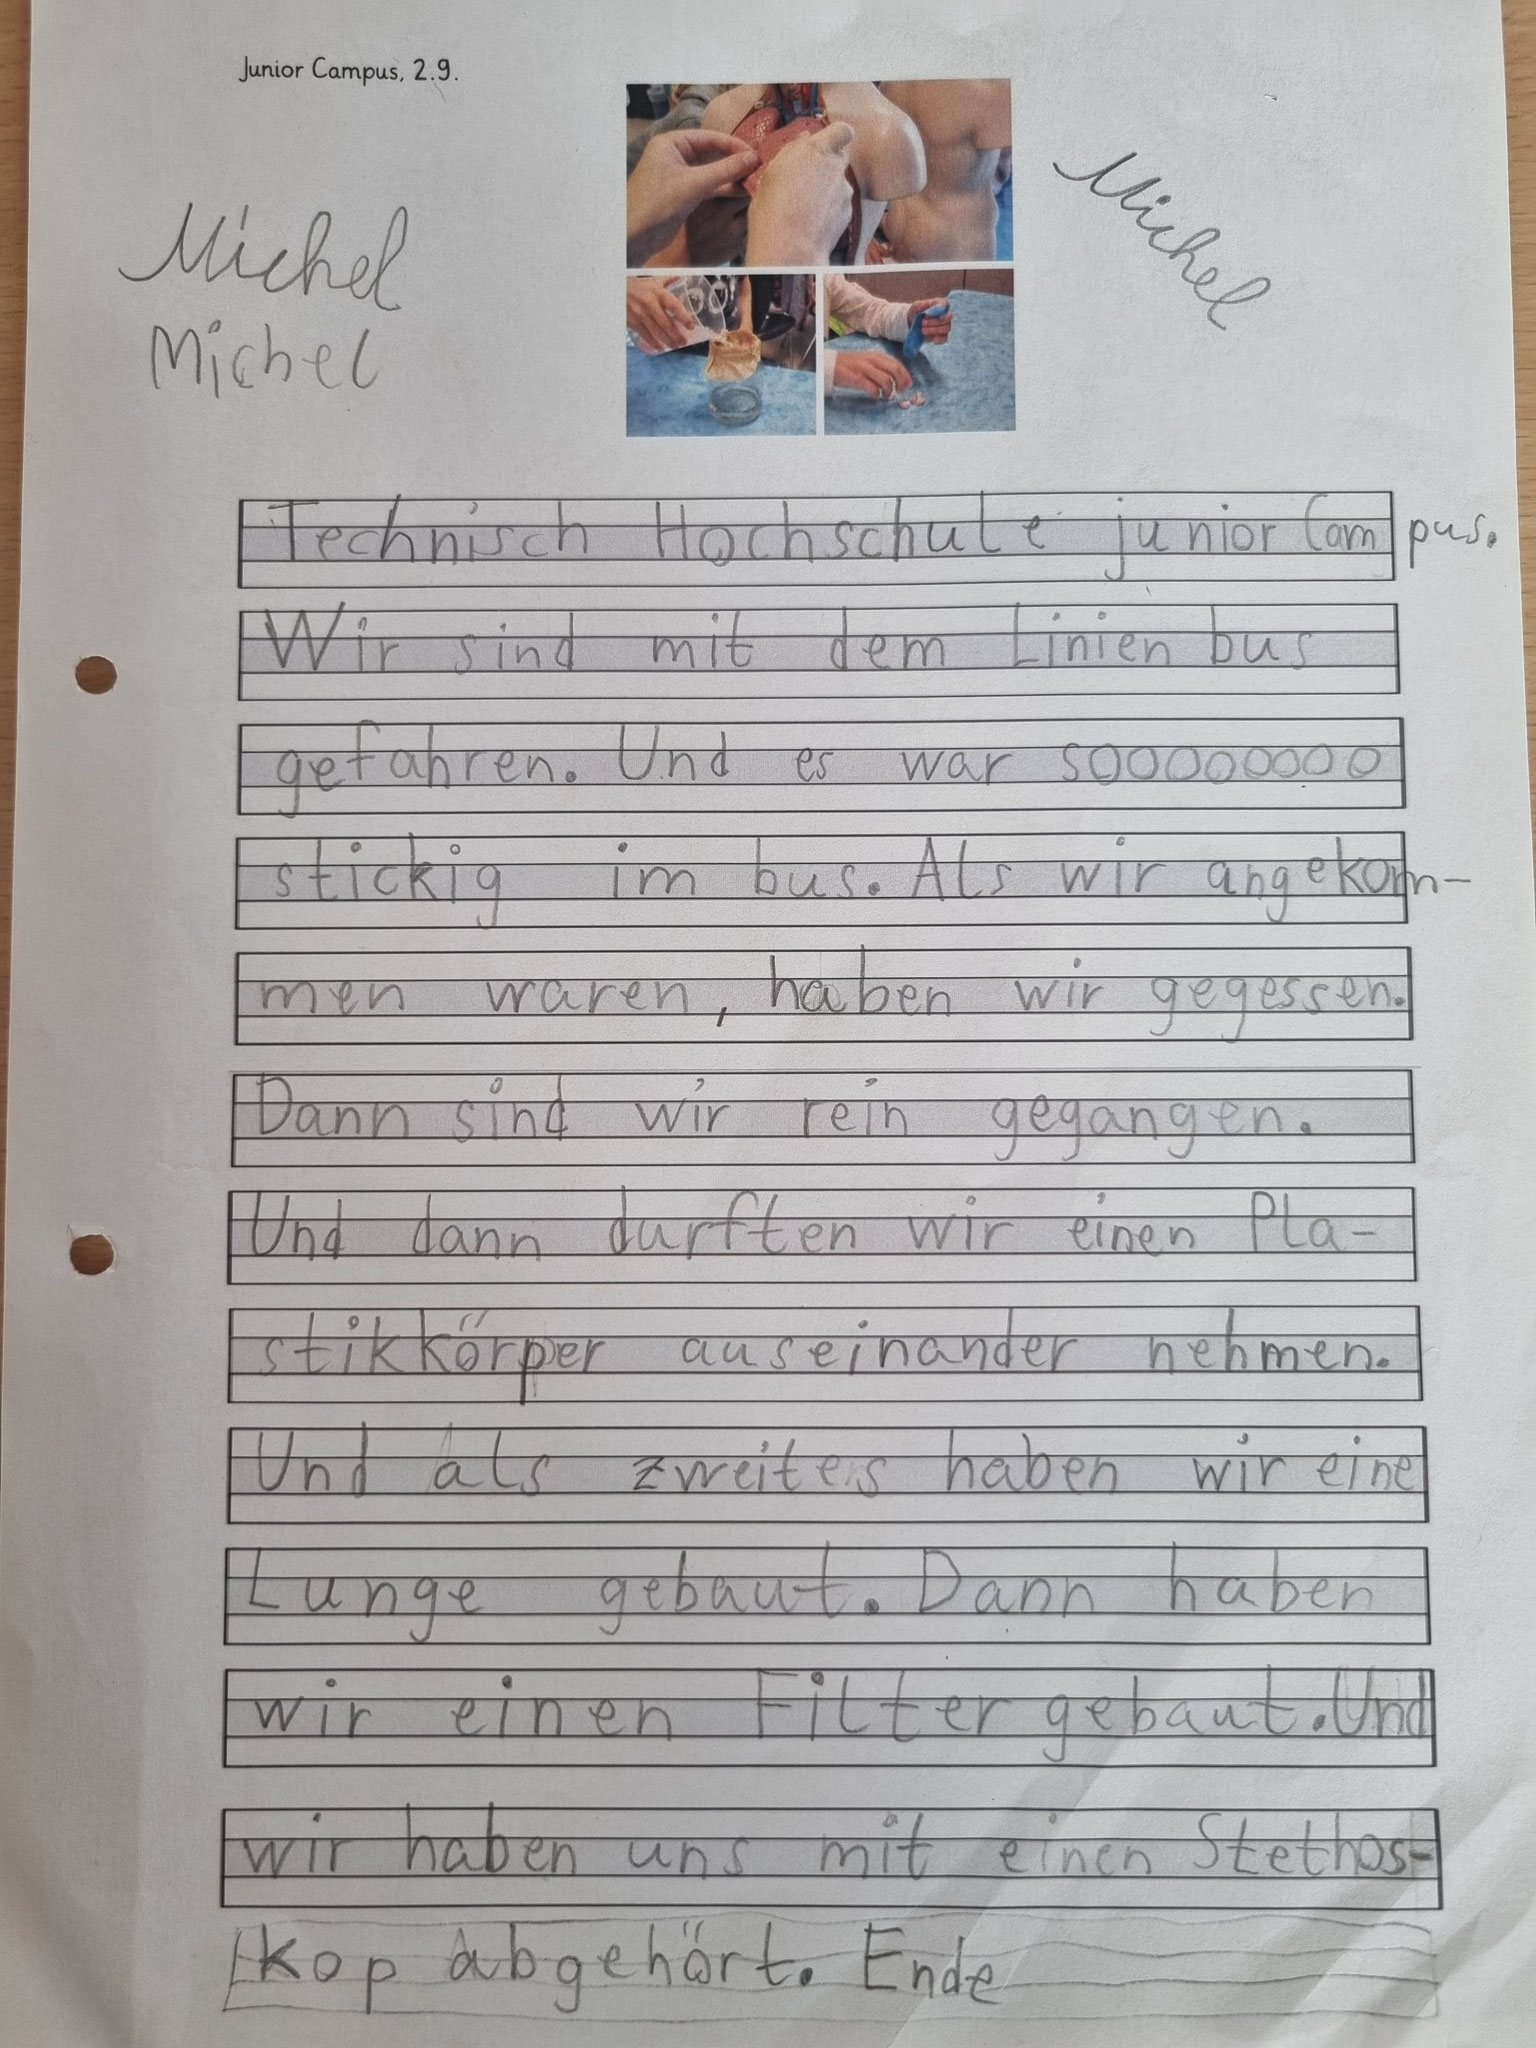 Junior Campus, 2.9.
Michel
Michel
Michel
Technisch Hochschule junior Campus.
Wir sind mit dem Linienbus
gefahren. Und es war soooooooo
stickig im bus. Als wir angekom-
men waren, haben wir gegessen.
Dann sind wir rein gegangen.
Und dann durften wir einen Pla-
stikkörper auseinander nehmen.
Und als zweites haben wir eine
Lunge gebaut. Dann haben
wir einen Filter gebaut. Und
wir haben uns mit einen Stethos-
kop abgehört. Ende